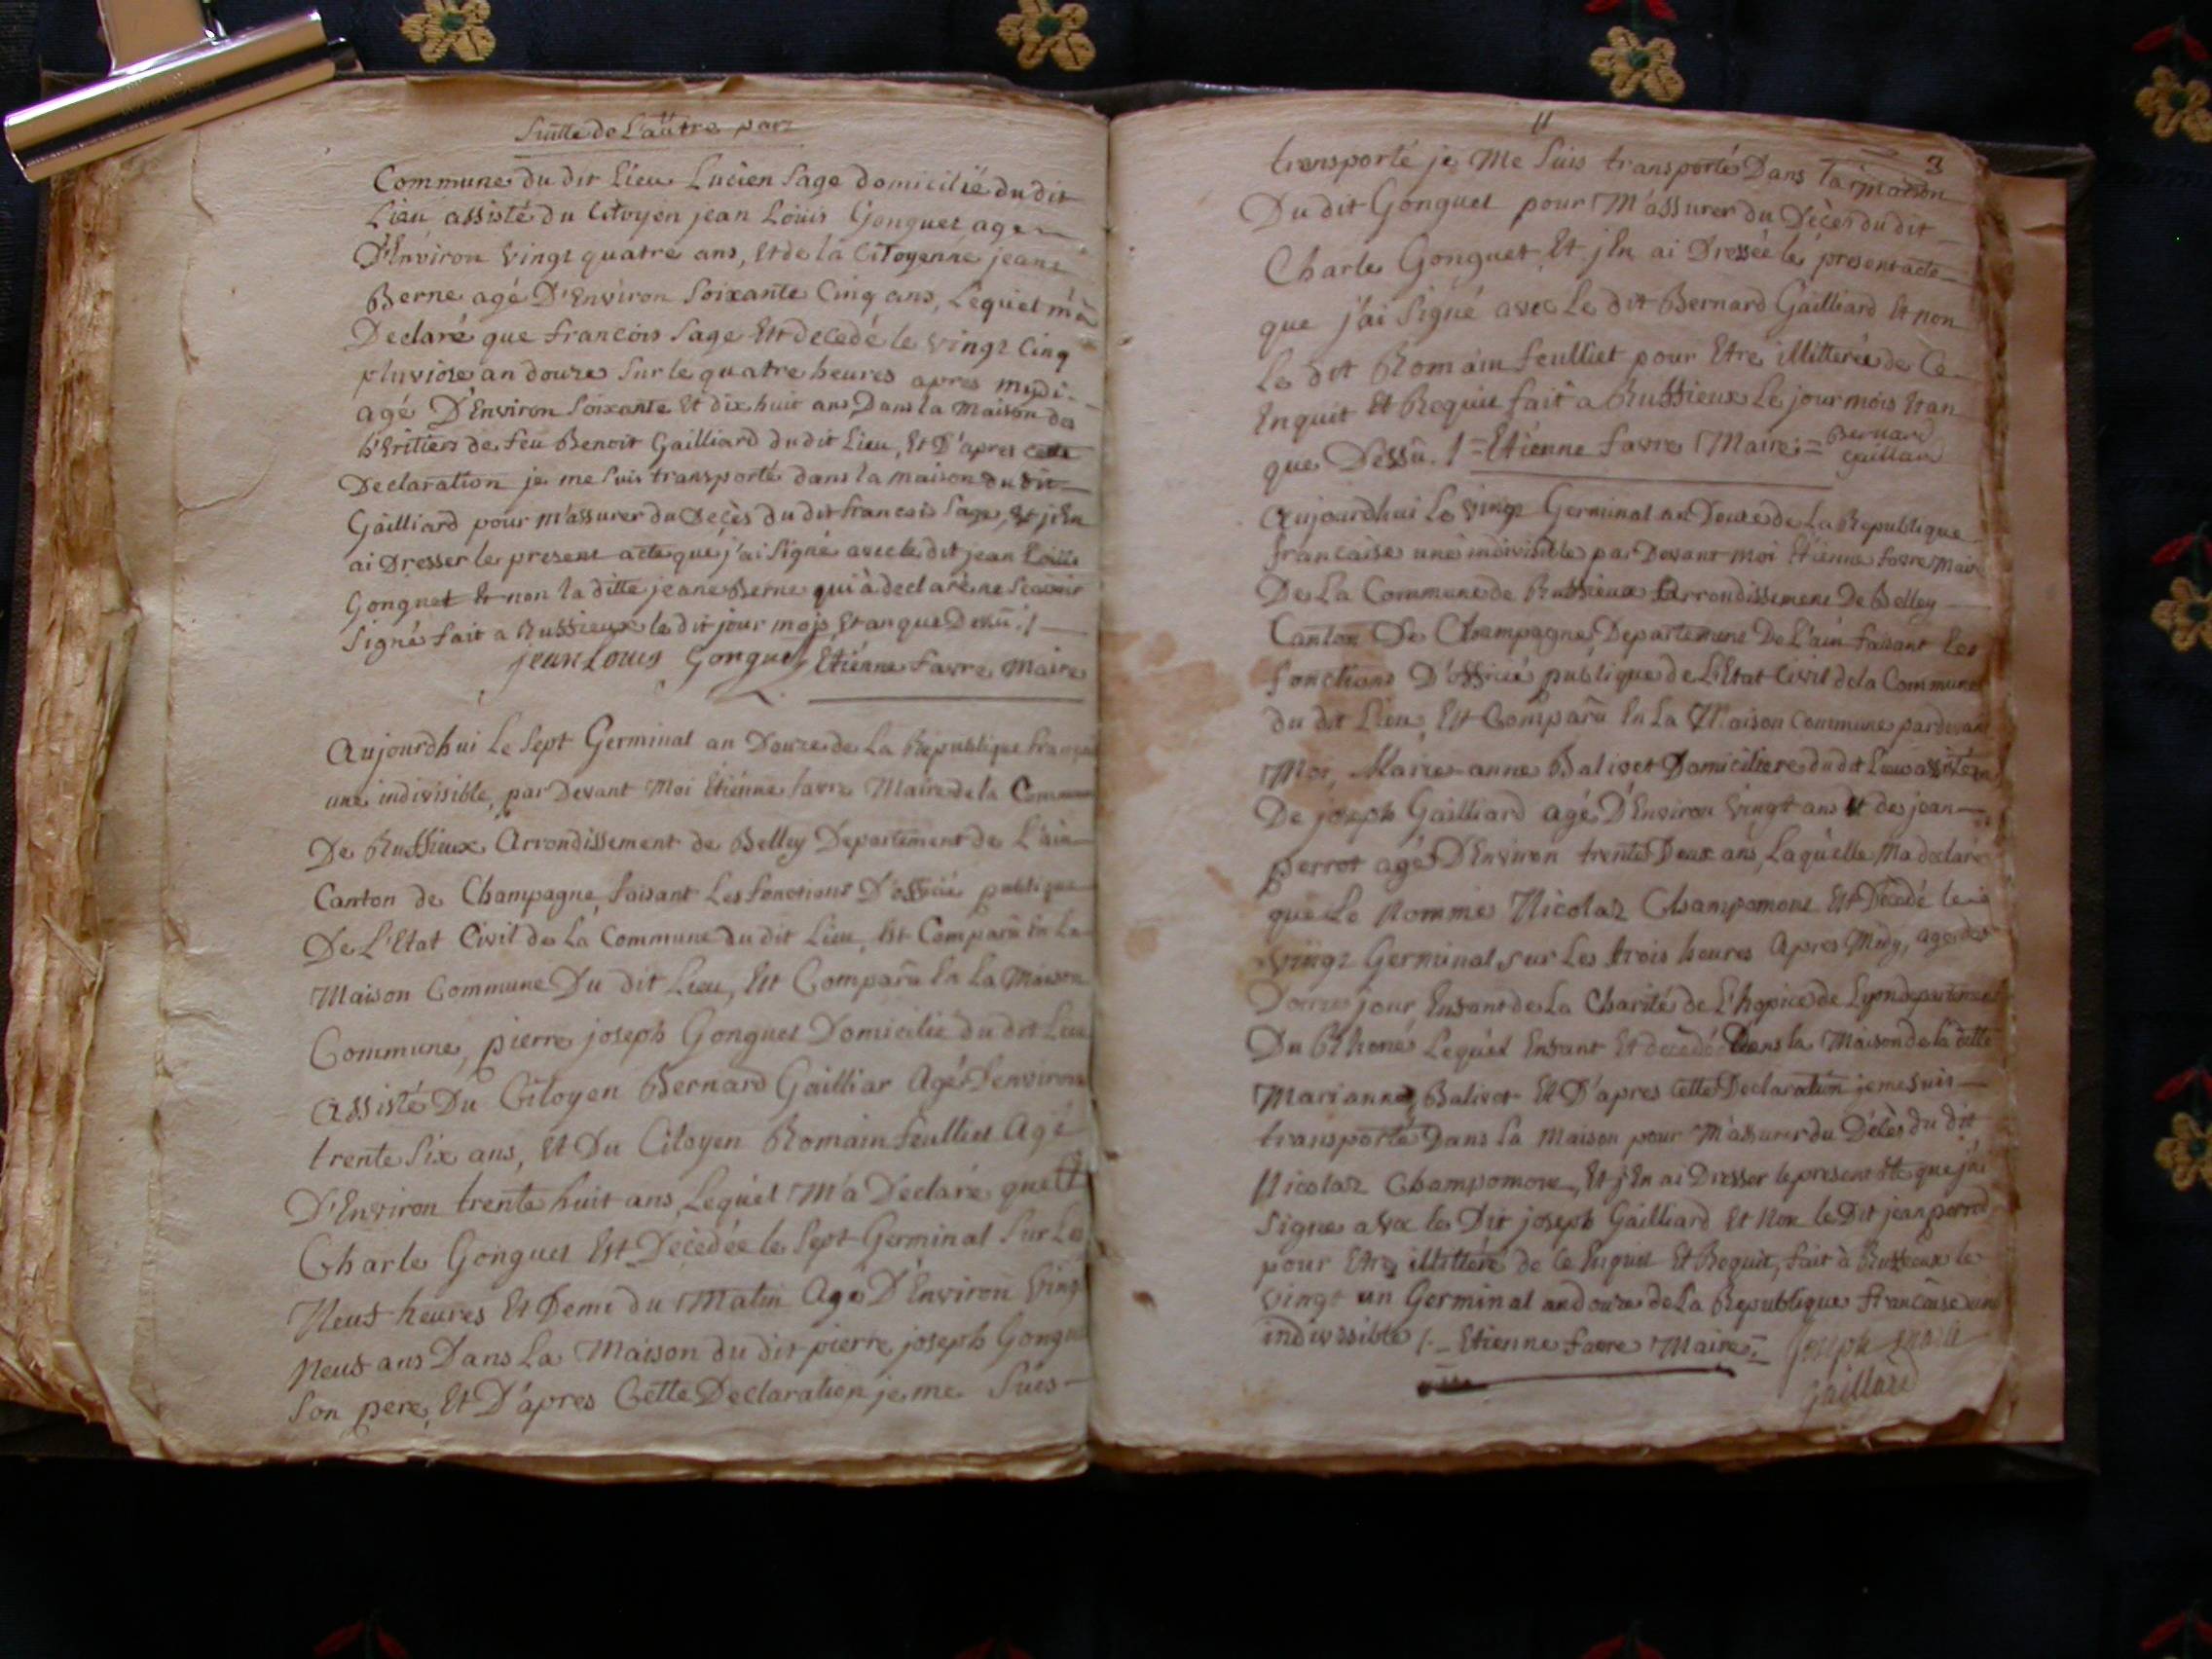 Suitte de L'autre part
Commune du dit Lieu Lucien Sage domicilié du dit
Lieu assisté du Citoyen jean Loüis Gonguet age
D'Environ vingt quatre ans, Et de la Citoyenne jeane
Berne agé D'Environ Soixante Cinq ans, Lequiel m'a
Declaré que francois Sage Est decedé le vingt Cinq
pluviose an douze Sur le quatre heures apres midi
agé D'Environ Soixante Et dix huit ans, Dans la Maison des
h'Eritiers de feu Benoit Gailliard du dit Lieu, Et D'apres cette
Declaration je me Suis transporté dans la maison du dit
Gailliard pour m'assurer du Decès du dit francois Sage, Et j'En
ai Dresser le present acte que j'ai Signé avec le dit jean Loüis
Gonguet Et non la ditte jeane Berne qui à declaré ne Scavoir
Signé fait a Russieux le dit jour mois Et an que Dessu ./
jean Louis Gonguet Etiénne favre, Maire
Aujourdhui Le Sept Germinal an Douze de La Republique français
une indivisible, par Devant Moi Etiénne favre Maire de la Commune
De Russieux Arrondissement de Belley Departement de L'ain
Canton de Champagne, faisant Les fonctions D'officié publique
De L'Etat Civil de La Commune du dit Lieu, Est Comparu En La
Maison Commune Du dit Lieu, Est Comparu En La Maison
Commune, pierre joseph Gonguet Domicilié du dit Lieu
Assisté Du Citoyen Bernard Gailliar Agé D'environ
trente Six ans, Et Du Citoyen Romain feulliet Agé
D'Environ trente huit ans, Lequiel M'a Declaré que
Charle Gonguet Est Decedée le Sept Germinal Sur Les
Neuf heures Et Demi du Matin Agé D'Environ Vingt
Neuf ans Dans La Maison du dit pierre joseph Gonguet
Son pere, Et D'apres Cette Declaration je me Suis
11
3
transporté je Me Suis transporté Dans La maison
Du dit Gonguet pour M'assurer du Décès du dit
Charle Gonguet Et j'En ai Dressée le present acte
que j'ai Signé avec Le dit Bernard Gailliard Et non
Le dit Romain feulliet pour Etre illitterée de Ce
Enquit Et Requit fait a Russieux Le jour mois Et an
que Dessu. / = Etiénne favre Maire = Bernard
gaillard
Aujourdhui Le vingt Germinal an Douze de La Republique
francaise une indivisible par Devant moi Etiénne favre Maire
De La Commune de Russieux Arrondissement De Belley
Canton De Champagne Departement De L'ain faisant Les
fonctions D'officié publique de L'Etat Civil de la Commune
du dit Lieu, Est Comparu En La Maison Commune pardevant
Moi, Marie-anne Balivet Domiciliere du dit Lieu assistée
De joseph Gailliard agé D'Environ vingt ans Et de jean
perrot agé D'Environ trente Deux ans, Laquelle M'a declaré
que Le Nommé Nicolas Champomont Est Décedé le
vingt Germinal, sur Les trois heures Apres Midy, agé de
jour, Enfant de La Charité de L'hopice de Lyon departement
Du Rhoné Lequiel Enfant Et decedé Dans la Maison de la ditte
Marianne Balivet Et D'apres Cette Declaration je me suis
transporté Dans La Maison pour M'assurer du Décès du dit
Nicolas Champomont, Et j'En ai Dresser le present acte que j'ai
Signe avec le Dit joseph Gailliard Et Non le Dit jean perrot
pour Etre illitteré de Ce Enquit Et Requit, fait à Russieux le
vingt un Germinal an douze de La Republique francaise une
indivisible /. Etienne favre Maire = joseph
gaillard